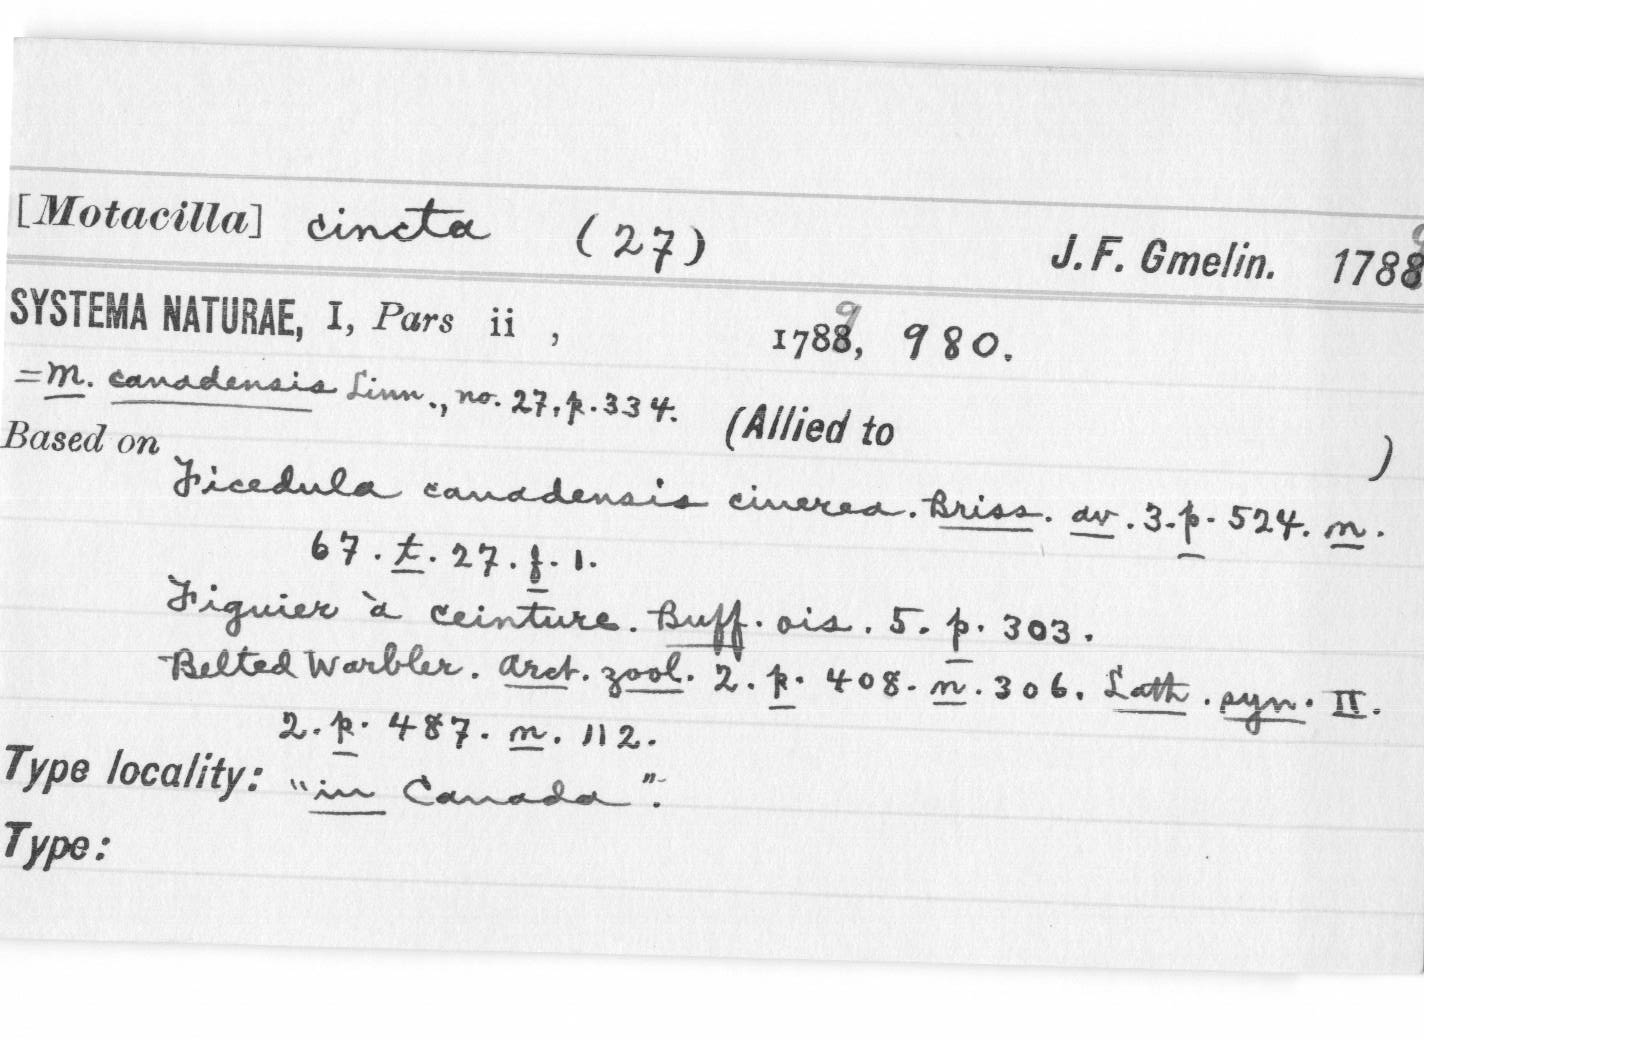 [Motacilla] cincta (27) J. F. Gmelin. 1788 9
SYSTEMA NATURAE, I, Pars ii , 1788 9, 980.
=M. canadensis Linn., no. 27, p. 334. (Allied to )
Based on
Ficedula canadensis cinerea. Briss. av. 3. p. 524. n.
67. t. 27. f. 1.
Figuier à ceinture. Buff. ois. 5. p. 303.
Belted Warbler. Arct. zool. 2. p. 408. n. 306. Lath. syn. II.
2. p. 487. n. 112.
Type locality: "in Canada".
Type: